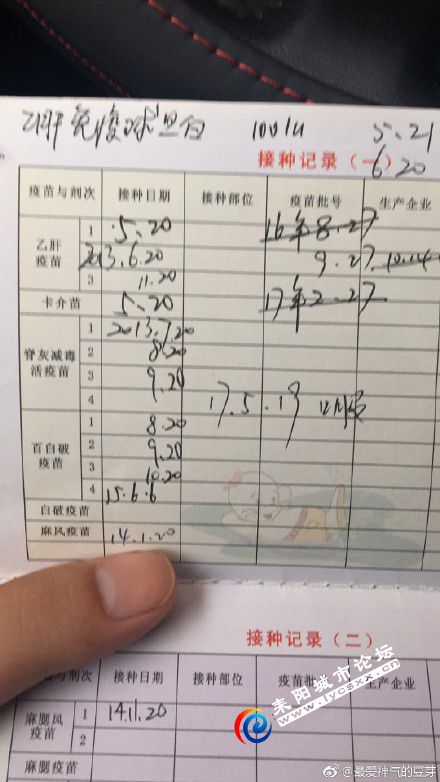 乙肝免疫球蛋白 100IU 5.21
接种记录（一） 6.20
疫苗与剂次 接种日期 接种部位 疫苗批号 生产企业
乙肝疫苗 1 .5.20 16年8.27
2 2013.6.20 9.27 10.14
3 11.20
卡介苗 5.20 17年2.27
脊灰减毒活疫苗 1 2013.7.20
2 8.20
3 9.20
4 17.5.19
百白破疫苗 1 8.20
2 9.20
3 10.20
4 15.6.6
白破疫苗
麻风疫苗 14.1.20
接种记录（二）
与剂次 接种日期 接种部位 疫苗批 生产企业
麻腮风疫苗 1 14.11.20
2
麻腮疫苗
耒阳城市论坛
www.lycsxx.cn
@最爱神气的豆芽